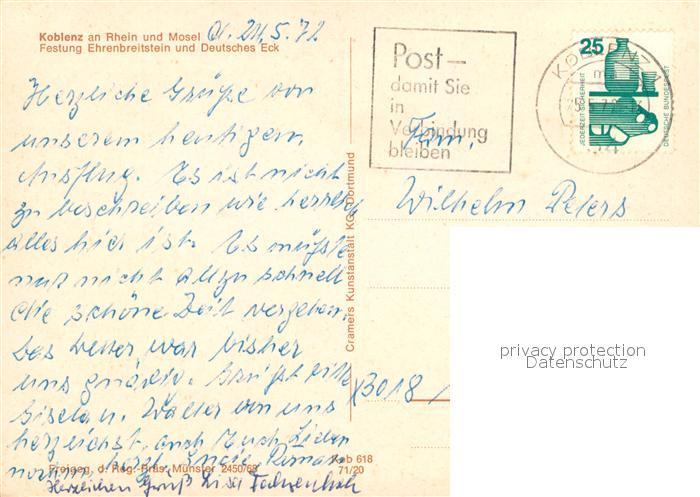 Koblenz an Rhein und Mosel
Festung Ehrenbreitstein und Deutsches Eck
24.5.72
Herzliche Grüße von
unserem heutigen
Ausflug. Es ist nicht
zu beschreiben wie herrlich
alles hier ist. Es müßte
nur nicht allzu schnell
die schöne Zeit vergehen.
Das Wetter war bisher
uns gnädig. Grüßt bitte
Giselau. Walter von uns
herzlichst, auch Euch Lieben
Freigeg. d. Reg. Präs. Münster 2450/68
Herzlichen Gruß Lisa
Cramers Kunstanstalt KG, Dortmund
Kob 618
71/20
Post –
damit Sie
in
Verbindung
bleiben
KOBLENZ
25
JEDERZEIT SICHERHEIT
DEUTSCHE BUNDESPOST
Fam.
Wilhelm Peters
3018
privacy protection
Datenschutz